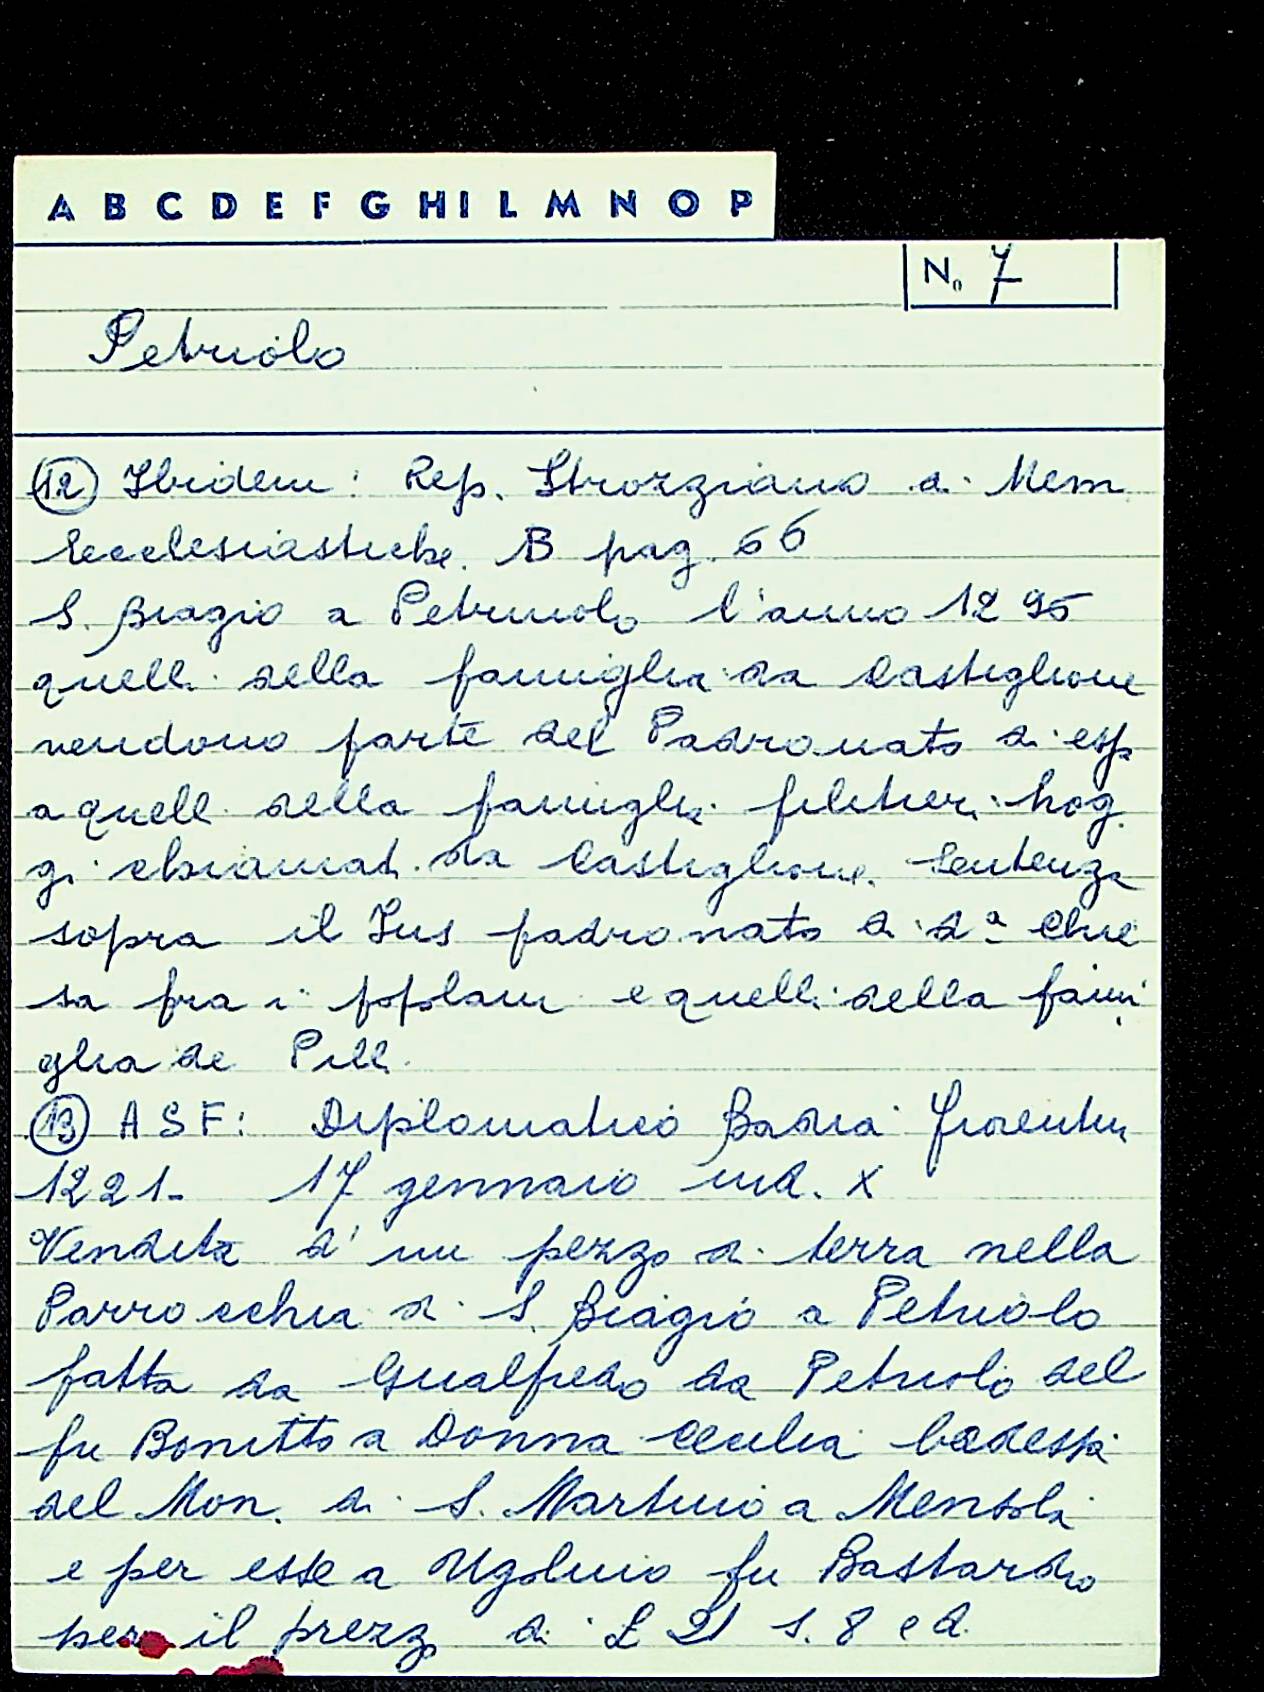 A B C D E F G H I L M N O P
N. 7
Petriolo
(12) Ibidem: Rep. Strozziano di Mem
Ecclesiastiche. B pag. 66
S. Biagio a Petriuolo l'anno 1295
quelli della famiglia da Castiglione
vendono parte del Padronato di essa
a quelli della famiglia filitieri hog
gi chiamati da Castiglione. Sentenza
sopra il Jus padronato di d.ª Chie
sa fra i popolani e quelli della fami
glia de Pilli.
(13) ASF: Diplomatico Badia Fiorentina
1221- 17 gennaio ind. X
Vendita d'un pezzo di terra nella
Parrocchia di S. Biagio a Petriolo
fatta da Gualfredo da Petriolo del
fu Bonitto a Donna Cecilia badessa
del Mon. di S. Martino a Mensola
e per esse a Ugolino fu Bastardo
per il prezzo di £ 21 s. 8 e d.